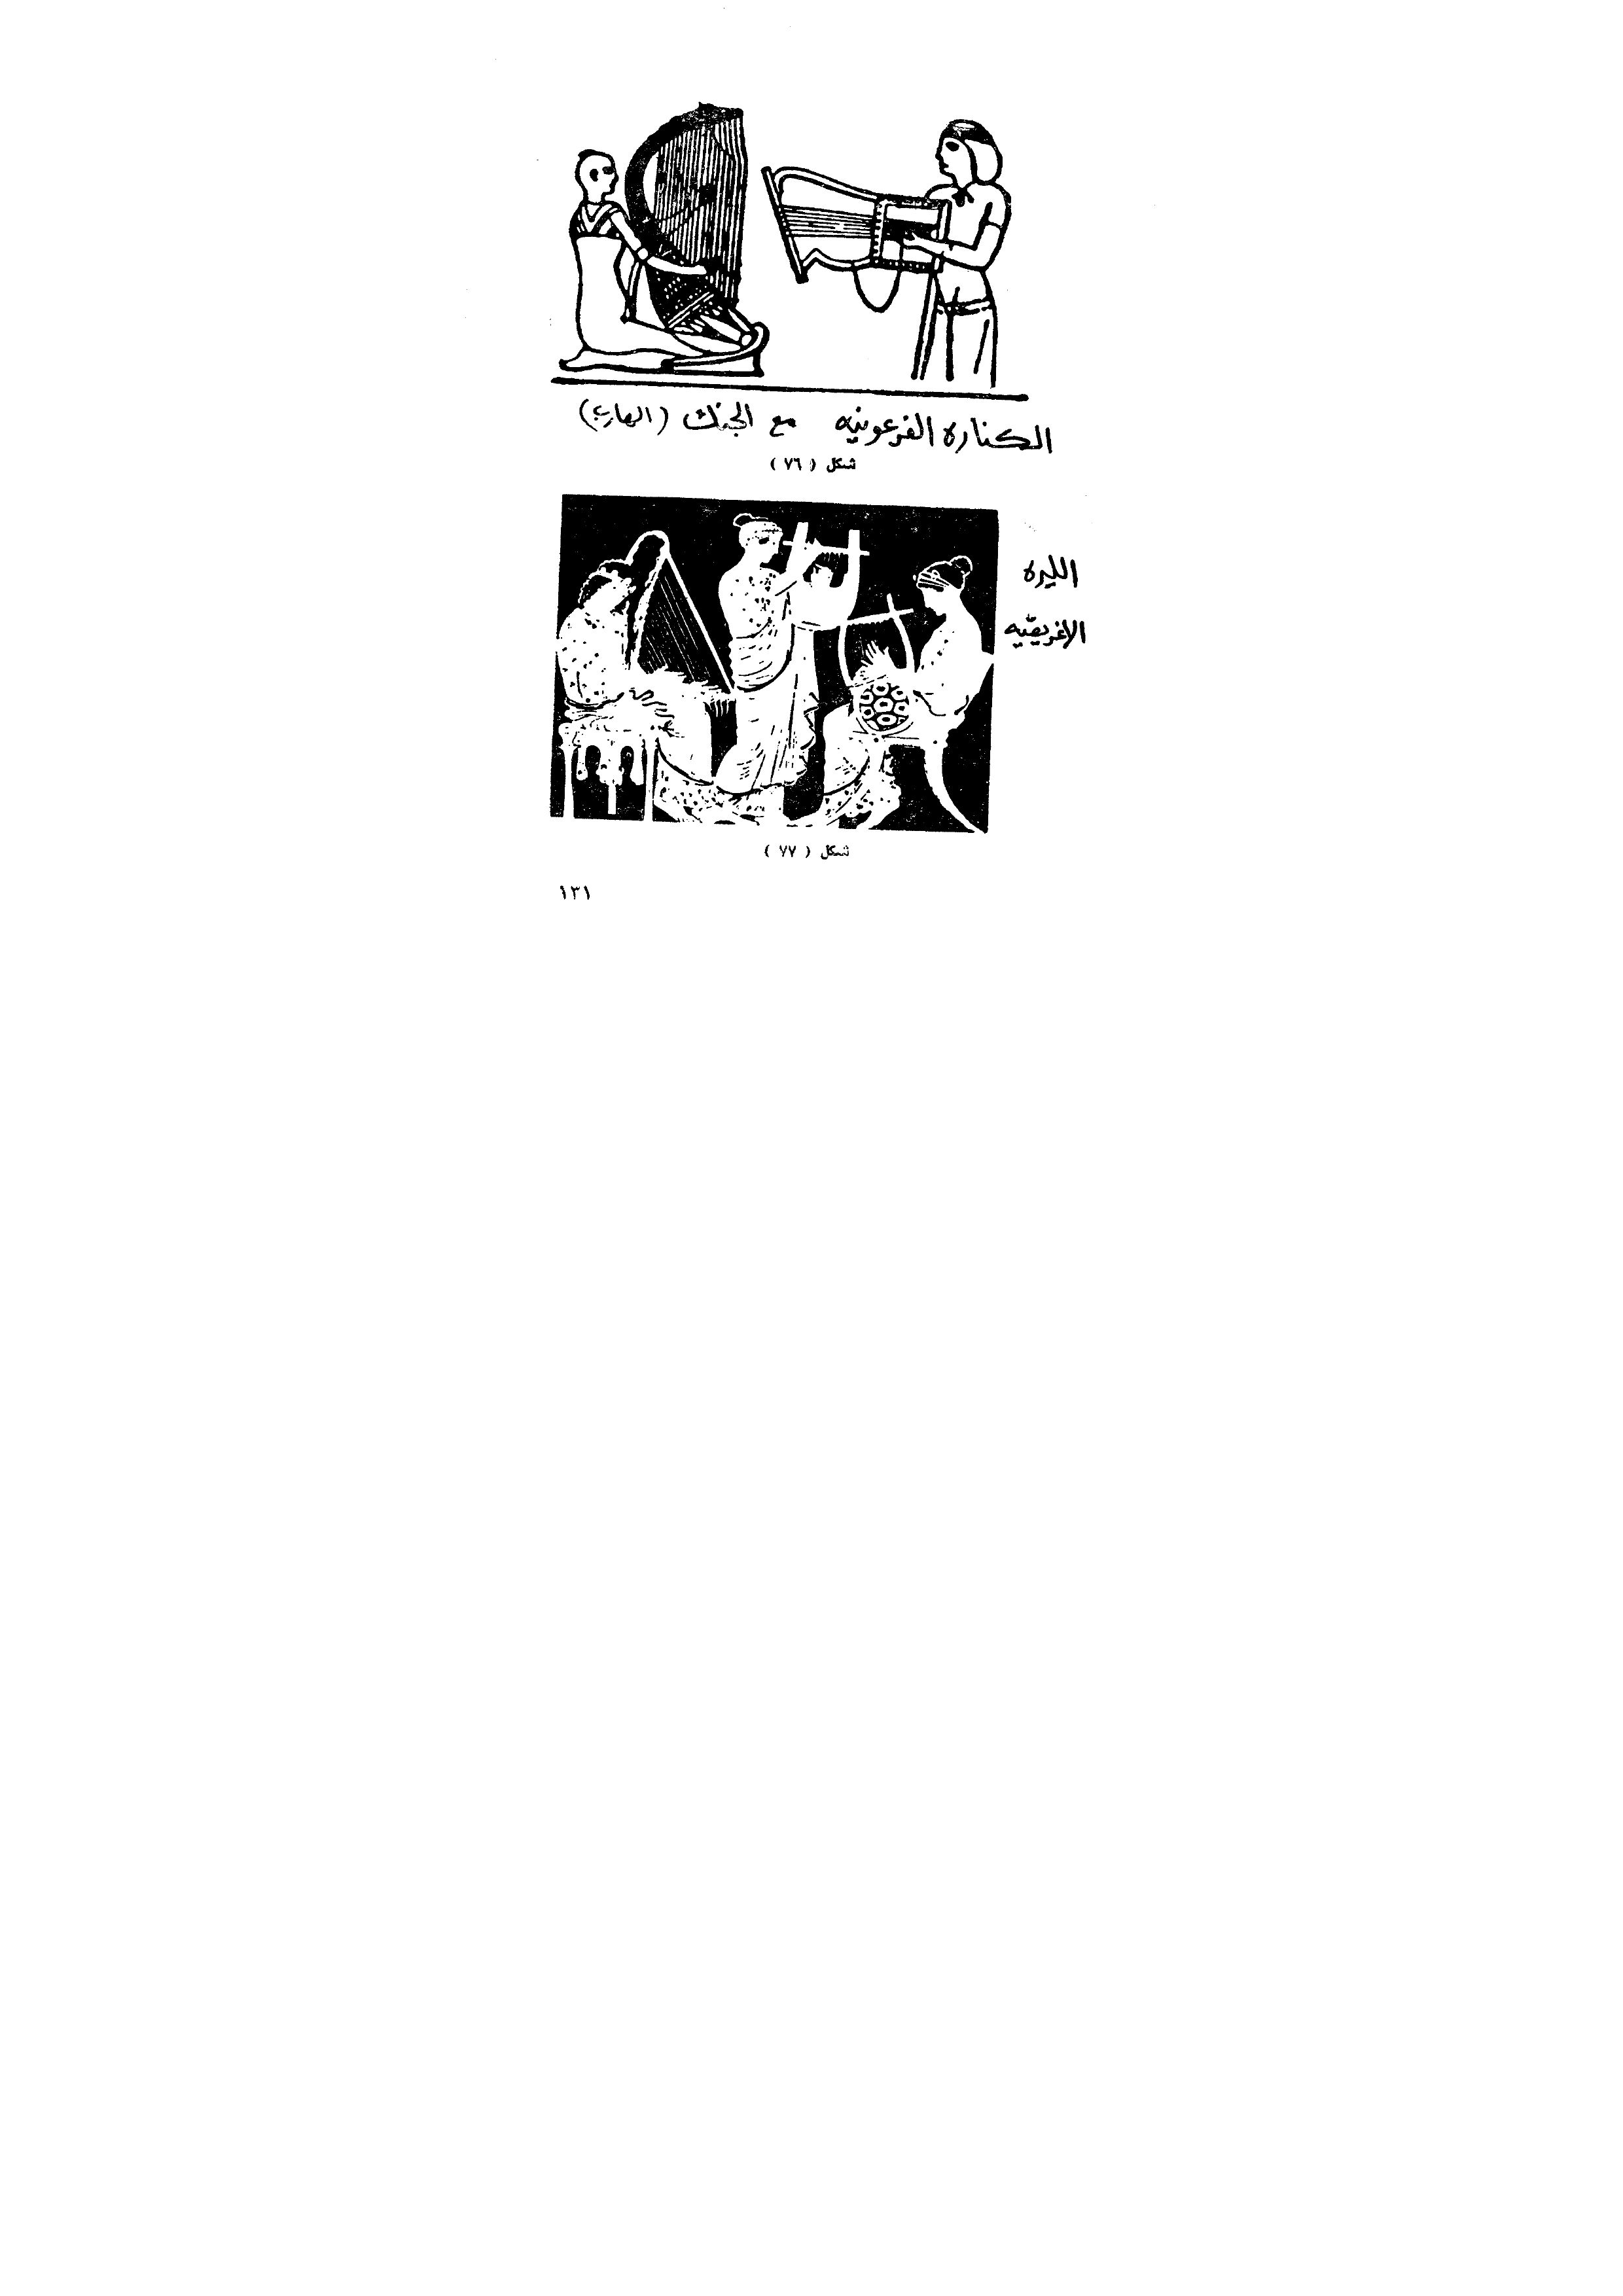 الكناره الفرعونيه مع الجنك (الهارب)
شكل (٧٦)
الليره
الاغريقيه
شكل (٧٧)
١٣١